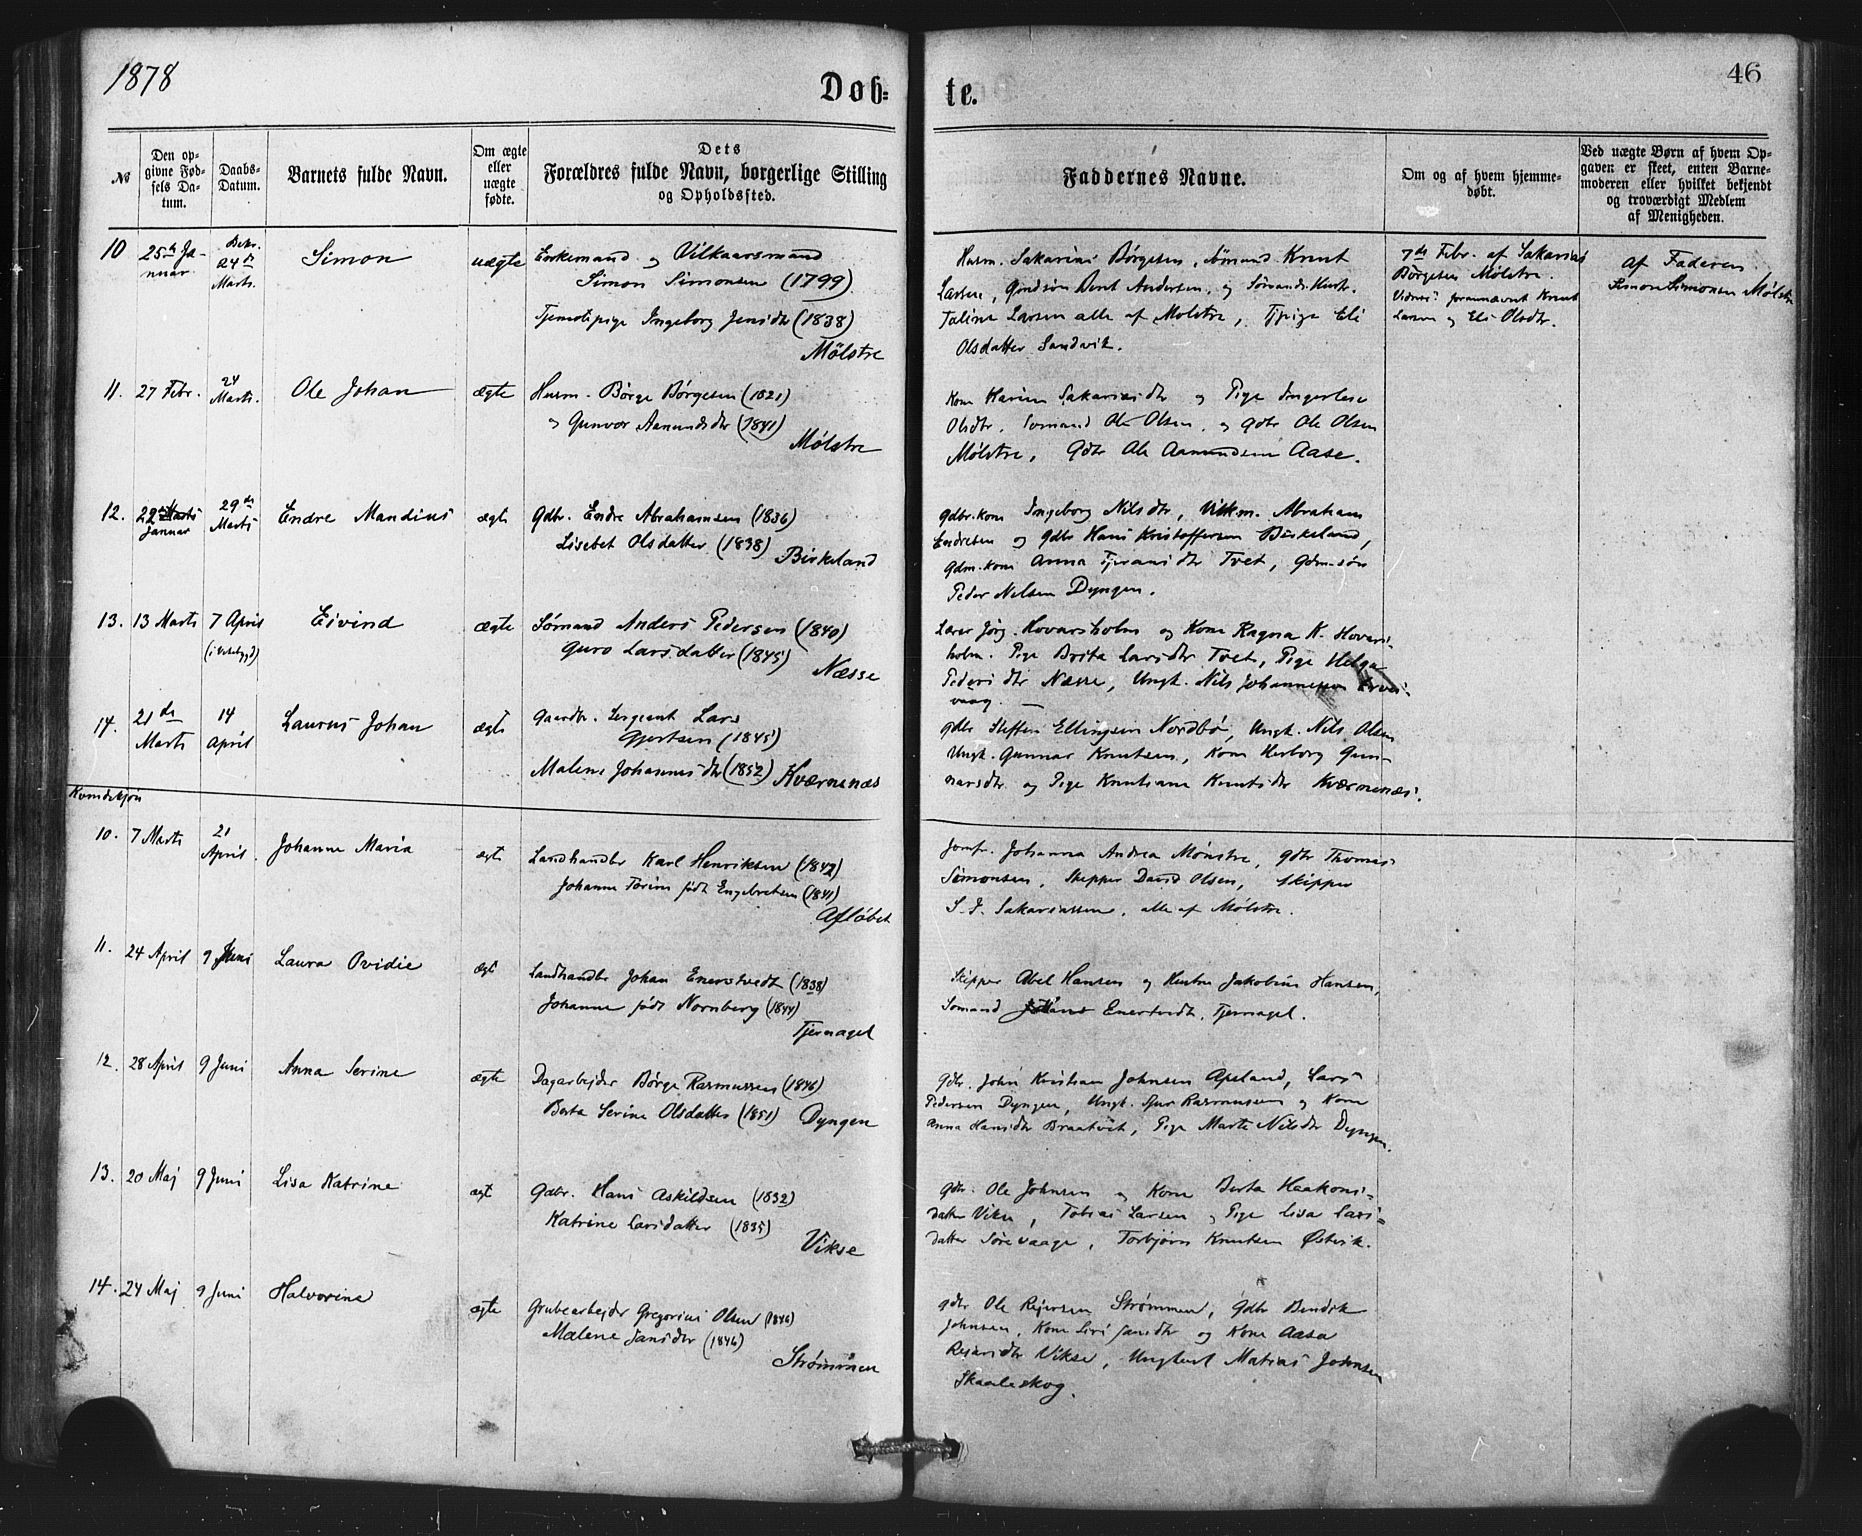 1878
Døb-
te.
46
No
Den opgivne Fødsels Datum.
Daabs-Datum.
Barnets fulde Navn.
Om ægte eller uægte fødte.
Dets
Forældres fulde Navn, borgerlige Stilling
og Opholdssted.
Faddernes Navne.
Om og af hvem hjemmedøbt.
Ved uægte Børn af hvem Opgaven er skeet, enten Barnemoderen eller hvilket bekjendt og troværdigt Medlem af Menigheden.
10 25de Januar Bekr. 24de Marts. Simon uægte Enkemand og Vilkaarsmand
Simon Simonsen (1799)
Tjenestepige Ingeborg Jensdtr (1838)
Mølstre
Husm. Sakarias Børgesen, Sømand Knut
Larsen, Andersen, og Sømands Hustr.
Taline Larsen alle af Mølstre, Tjpige Eli
Olsdatter Sandvik.
7de Febr. af Sakarias
Børgesen Mølstre.
Vidner: forannævnt Knut
Larsen og Eli Olsdtr.
Af Faderen
Simon Simonsen Mølstre
11. 27 Febr. 24 Marts. Ole Johan ægte Husm. Børge Børgesen (1821)
og Gunvor Aamundsdtr (1841)
Mølstre
Kone Karina Sakariasdtr og Pige Ingerlise
Olsdtr. Sømand Ole Olsen, og Gdbr Ole Olsen
Mølstre, Gdbr Ole Aamundsen Aase.
12. 22de Marts Januar 29de Marts Endre Mandius ægte Gdbr. Endre Abrahamsen (1836)
Lisebet Olsdatter (1838)
Birkeland
Gdbr.kone Ingeborg Nilsdtr, Vilkm. Abraham
Endresen og Gdbr Hans Kristoffersen Birkeland,
Gdm.kone Anna Tveit, Gdm.søn
Peder Nelsen Dyngen.
13. 13 Marts 7 April Eivind ægte Sømand Anders Pedersen (1840)
Guro Larsdatter (1845)
Næsse
Lærer Jørg. Hovarsholm og Kone Ragna K. Hovars-
holm. Pige Brita Larsdtr Tvet, Pige Helga
Pedersdtr Næsse, Ungk. Nils Johannessen
vaag.
14. 21de Marts 14 April Laurus Johan ægte Gaardbr. Sergeant Lars
Gjertsen (1845)
Malene Johannesdtr (1852) Kværnenæs
Gdbr Steffen Ellingsen Nordbø, Ungk. Nils Olsen
Ungk. Gunnar Knutsen, Kone Herborg Gun-
narsdtr og Pige Knutsdtr Kværnenæs.
Kvindekjøn
10. 7 Marts 21 April. Johanne Maria ægte Landhandler Karl Henriksen (1842)
Johanne Torine født Engebretsen (1841)
Afløbet
Jomfr. Johanna Andrea Mønstre, Gdbr Thomas
Simonsen, Skipper David Olsen, Skipper
S. J. Sakariassen, alle af Mølstre.
11. 24 April 9 Juni Laura Ovidie ægte Landhandler Johan Enerstvedt (1838)
Johanne født Nornberg (1844)
Tjernagel
Skipper Abel Hansen og Hustru Jakobine Hansen,
Sømand Enerstvedt, Tjernagel.
12. 28 April 9 Juni Anna Serine ægte Dagarbejder Børge Rasmussen (1846)
Berta Serine Olsdatter (1851) Dyngen
Gdbr. John Kristian Johnsen Apeland, Lars
Pedersen Dyngen, Ungk. Rasmussen og Kone
Anna Hansdtr Braatveit, Pige Marta Nilsdtr Dyngen.
13. 20 Maj 9 Juni Lisa Katrine ægte Gdbr. Hans Askildsen (1832)
Katrine Larsdatter (1835)
Vikse
Gdbr. Ole Johnsen og Kone Berta Haakons-
datter Vikse, Tobias Larsen og Pige Lisa Lars-
datter Sørevaage, Torbjørn Knutsen Østvik.
14. 24 Maj 9 Juni Halvorine ægte Grubearbejder Gregorius Olsen (1846)
Malene Jansdtr (1846)
Strømmen
Gdbr Ole Rejersen Strømmen, Gdbr Bendik
Johnsen, Kone Siri Jansdtr og Kone Aasa
Rejersdtr Vikse, Ungkarl Matias Johnsen
Skaaleskog.